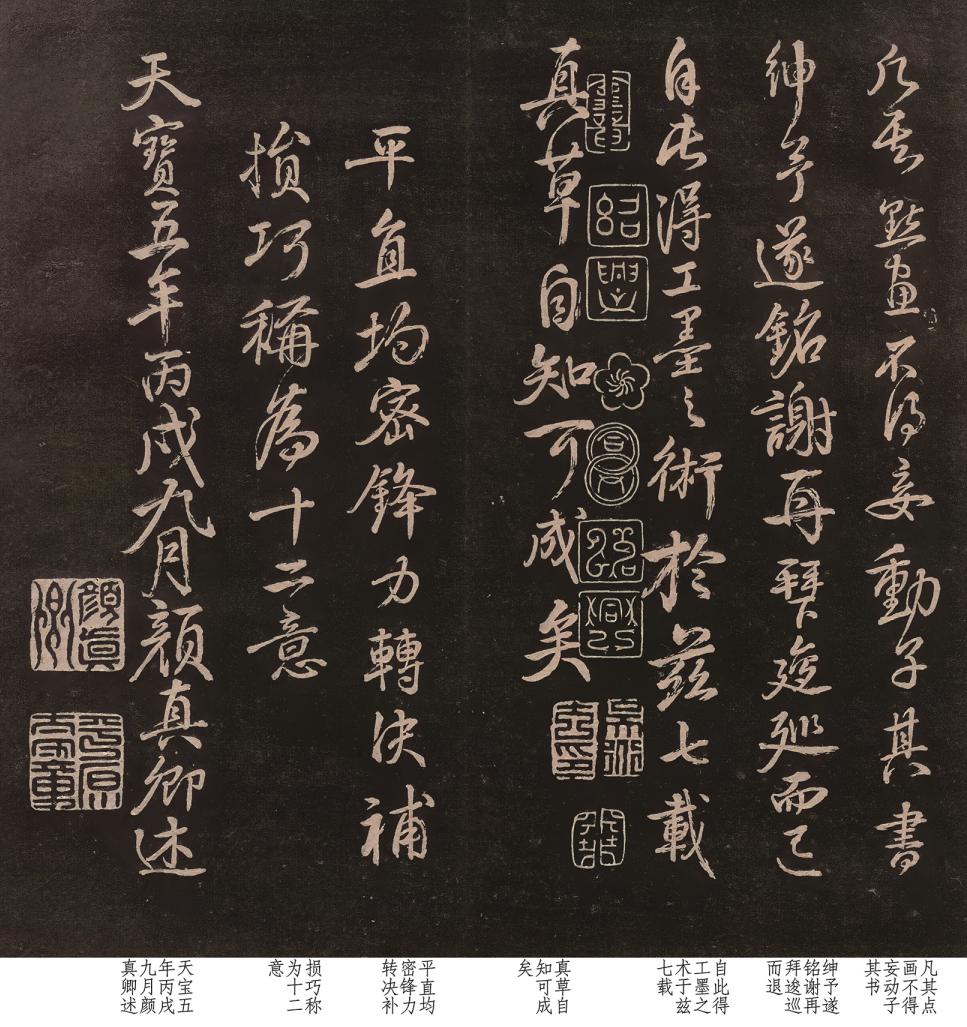 凡其點畫不得妄動子其書
紳予遂銘謝再拜逡巡而已
自此得工墨之術於茲七載
紹興
真草自知可成矣
平直均密鋒力轉決補
損巧稱為十二意
天寶五年丙戌九月顏真卿述
顏真卿
凡其点
画不得
妄动子
其书
绅予遂
铭谢再
拜逡巡
而退
自此得
工墨之
术于兹
七载
真草自
知可成
矣
平直均
密锋力
转决补
损巧称
为十二
意
天宝五
年丙戌
九月颜
真卿述